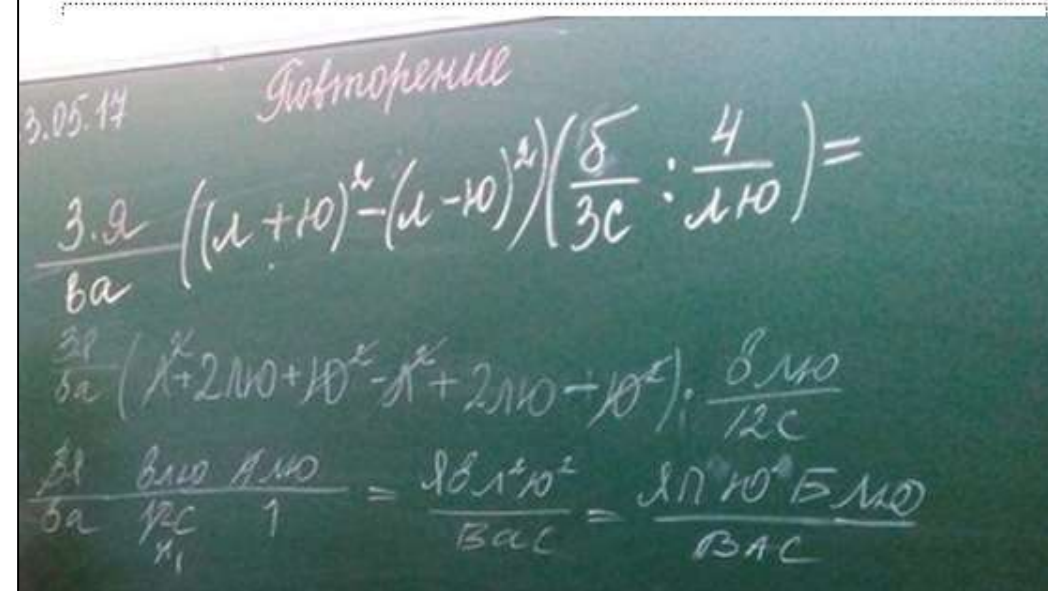 3.05.17 Повторение
3.Я/ва ((л+ю)²-(л-ю)²)(б/3с : 4/лю)=
3Я/ва (л²+2лю+ю²-л²+2лю-ю²) · влю/12с
3Я/ва влю/12с 4лю/1 = Явл²ю²/вас = ЯЛ²Ю²Б ЛЮ/ВАС